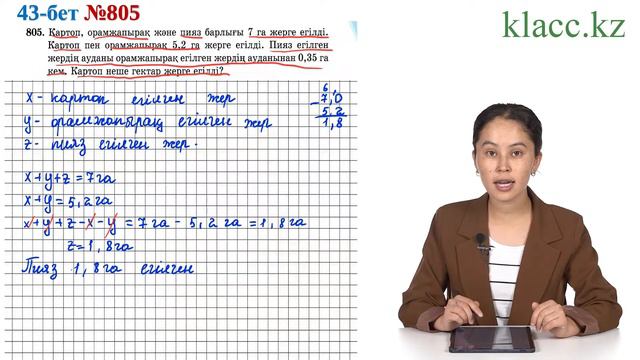 43-бет №805
klacc.kz
805. Картоп, орамжапырақ және пияз барлығы 7 га жерге егілді.
Картоп пен орамжапырақ 5,2 га жерге егілді. Пияз егілген
жердің ауданы орамжапырақ егілген жердің ауданынан 0,35 га
кем. Картоп неше гектар жерге егілді?
x - картоп егілген жер
y - орамжапырақ егілген жер
z - пияз егілген жер.
6
- 7,0
5,2
1,8
x+y+z=7га
x+y=5,2га
x+y+z-x-y=7га-5,2га=1,8га
z=1,8га
Пияз 1,8га егілген